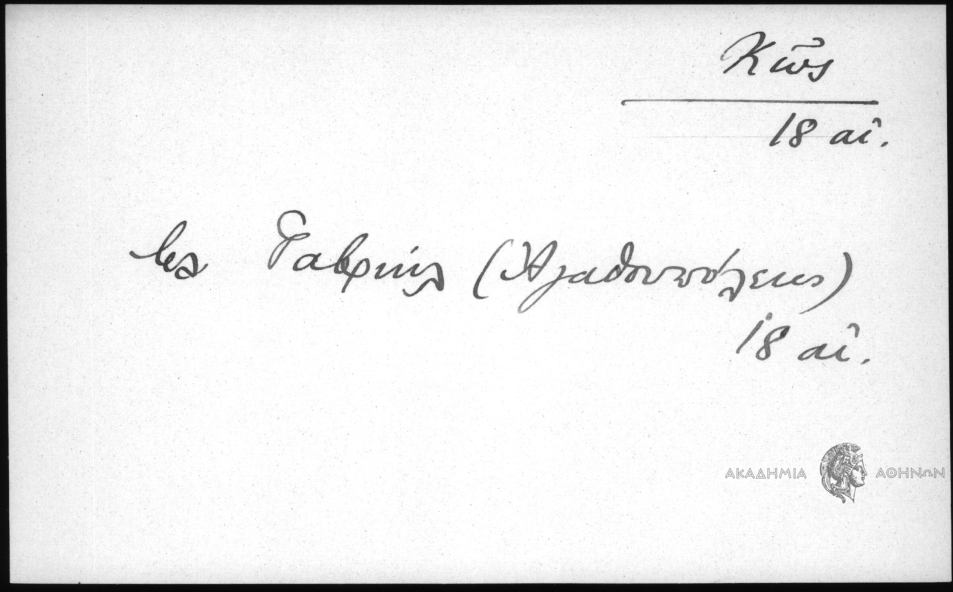 Κῶς
18 αἰ.
Γαβριήλ (Ἀγαθουπόλεως)
18 αἰ.
ΑΚΑΔΗΜΙΑ ΑΘΗΝΩΝ